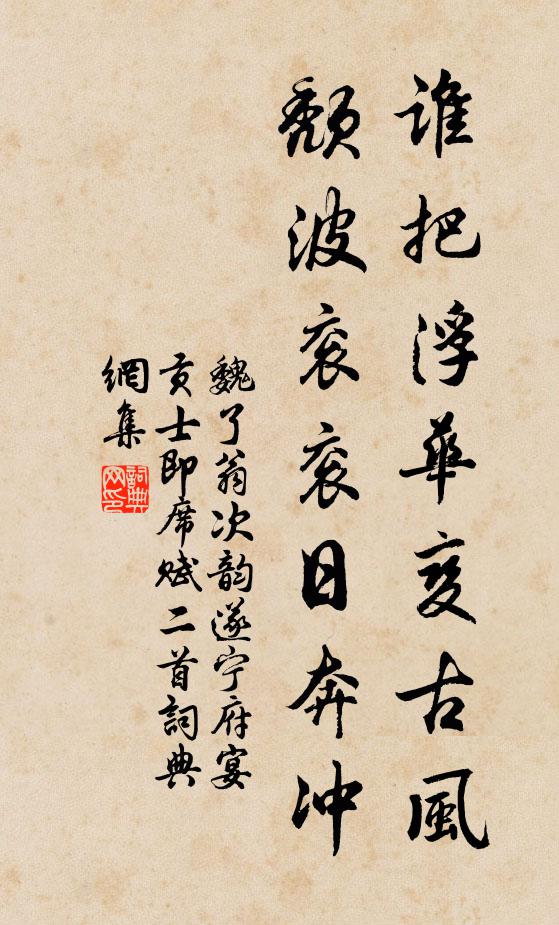 谁把浮華变古風
颓波衮衮日奔冲
魏了翁次韵遂宁府宴
贡士即席赋二首詞典
網集
詞典網印